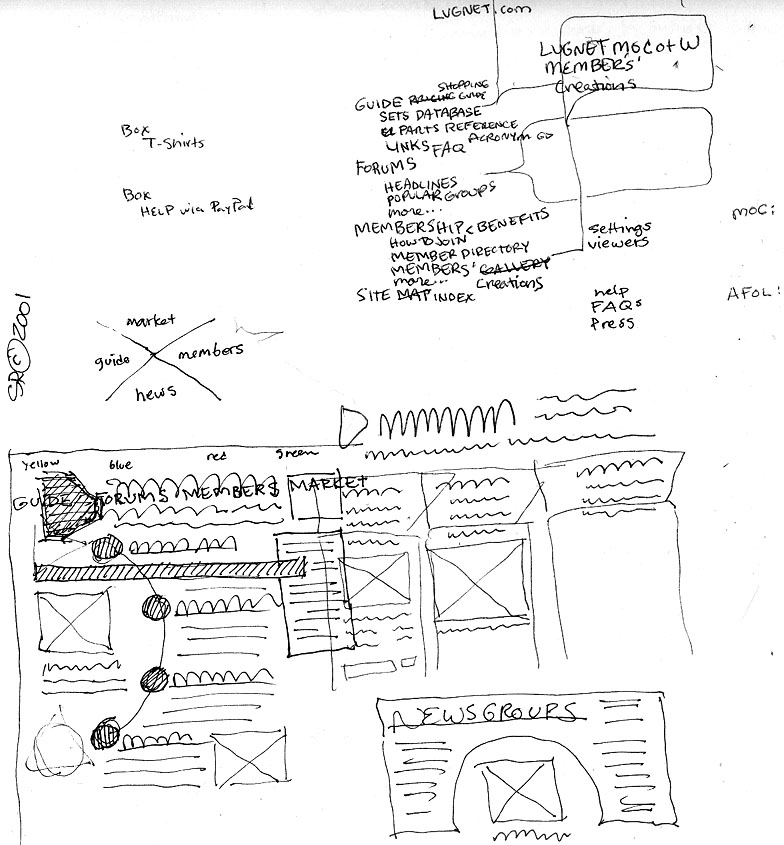 LUGNET.com
LUGNET MOC of W
MEMBERS'
Creations
SHOPPING
GUIDE
SETS DATABASE
PARTS REFERENCE
LINKS FAQ ACRONYM GD
FORUMS
HEADLINES
POPULAR GROUPS
more...
MEMBERSHIP & BENEFITS
HOW TO JOIN
MEMBER DIRECTORY
MEMBERS' GALLERY
Creations
more...
SITE MAP INDEX
Box
T-Shirts
Box
HELP via PayPal
settings
viewers
help
FAQs
Press
MOC:
AFOL:
SR © 2001
market
guide
members
news
yellow
blue
red
green
GUIDE FORUMS MEMBERS MARKET
NEWSGROUPS